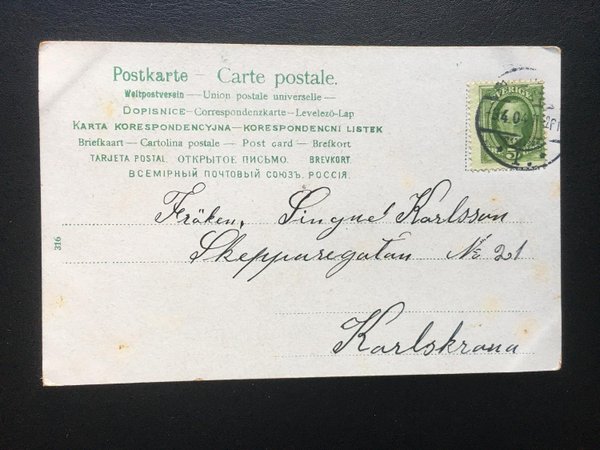 Postkarte – Carte postale.
Weltpostverein – Union postale universelle –
DOPISNICE – Correspondenzkarte – Levelező-Lap
KARTA KORESPONDENCYJNA – KORESPONDENCNI LISTEK
Briefkaart – Cartolina postale – Post card – Brefkort
TARJETA POSTAL ОТКРЫТОЕ ПИСЬМО. BREVKORT.
ВСЕМІРНЫЙ ПОЧТОВЫЙ СОЮЗЪ. РОССІЯ.
SVERIGE
5
316
Fröken, Singne Karlsson
Skepparegatan № 21
Karlskrona